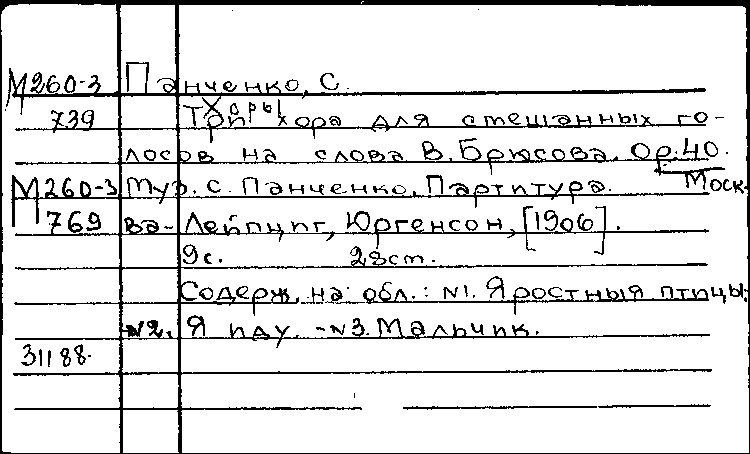 М260-3 Панченко, С.
Хоры
739 Три хора для смешанных го-
лосов на слова В. Брюсова. Op. 40.
М260-3 Муз. С. Панченко. Партитура. Моск-
769 ва-Лейпциг, Юргенсон, [1906].
9с. 28cm.
Содерж. на обл.: №1. Яростныя птицы.
№2. Я иду. -№3. Мальчик.
31188.